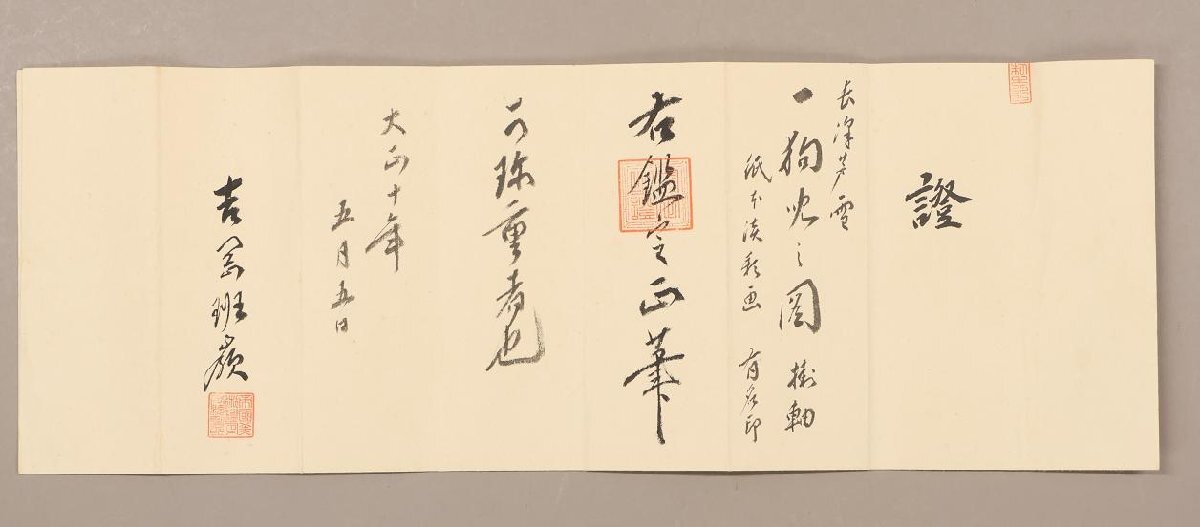 證
長澤芦雪
一狗児之図 掛軸
紙本淡彩画 有名印
右鑑定正筆
可珍重者也
大正十年
五月五日
吉岡班嶺